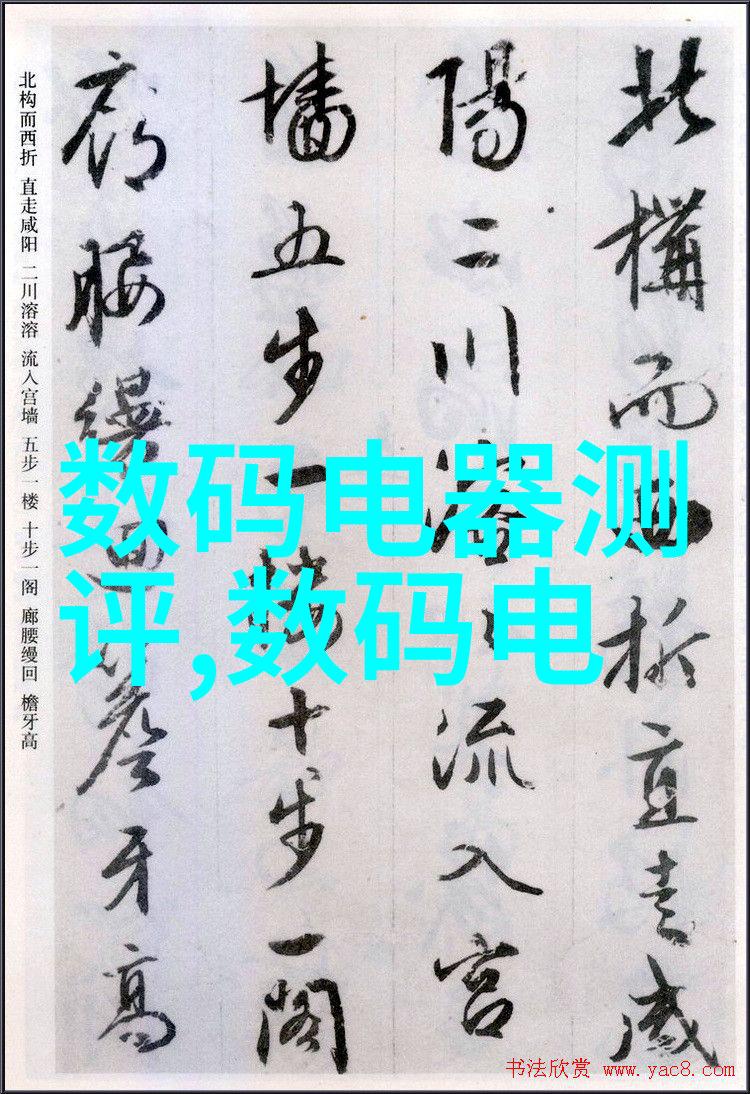 北構而西折直走咸
陽二川溶〻流入宮
墻五步一樓十步一閣
廊腰縵迴簷牙高
北构而西折 直走咸阳 二川溶溶 流入宫墙 五步一楼 十步一阁 廊腰缦回 檐牙高
数码电器测
评,数码电
书法欣赏 www.yac8.com